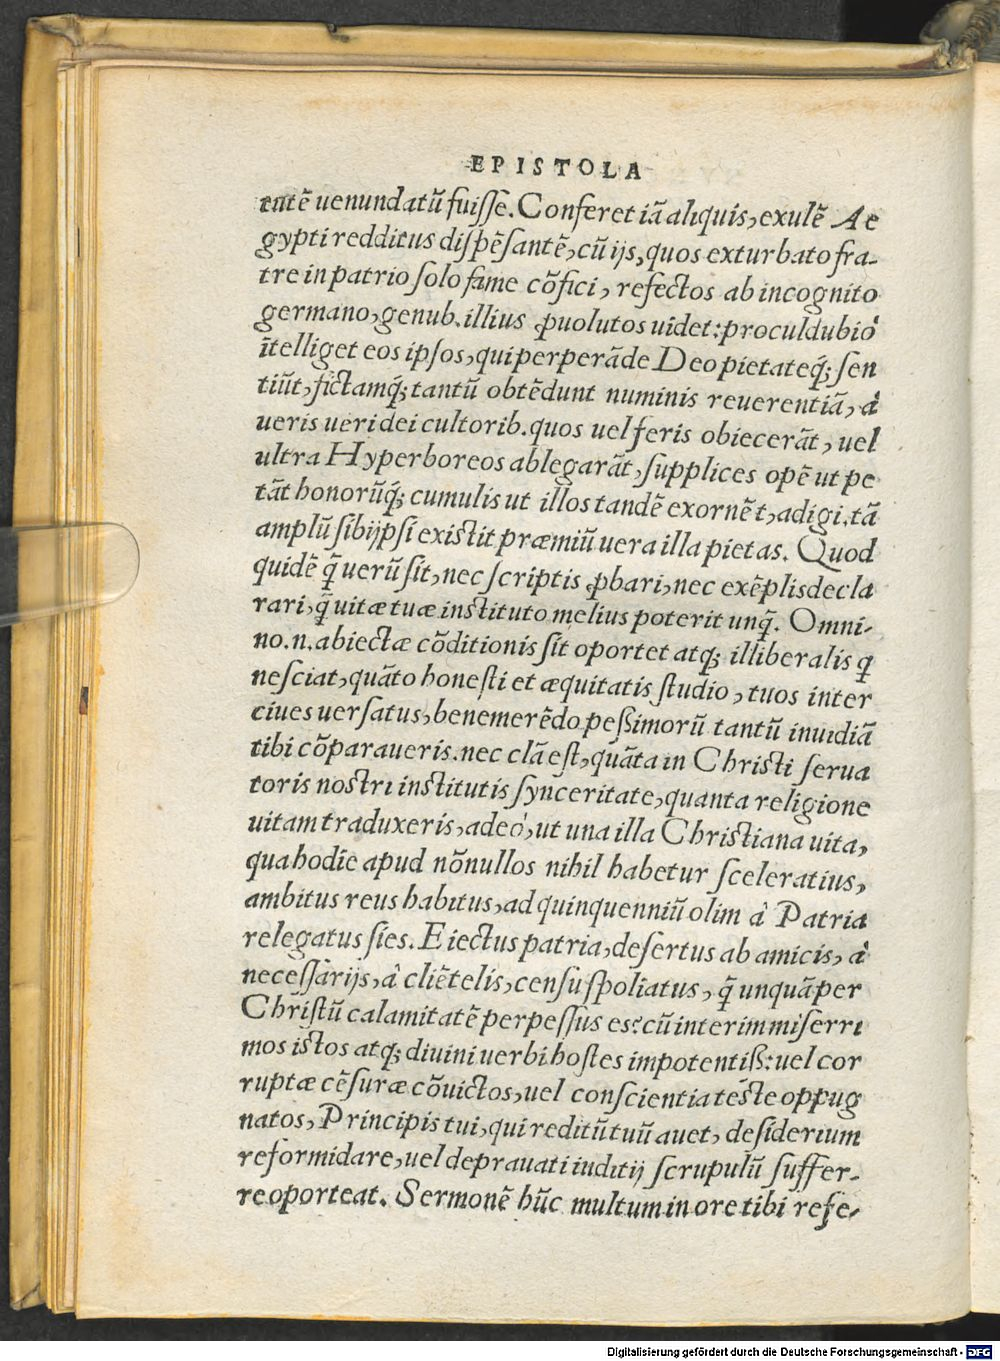 EPISTOLA
entẽ uenundatũ fuisse. Conferet iã aliquis, exulẽ Ae
gypti redditus dispẽsantẽ, cũ ijs, quos exturbato fra-
tre in patrio solo fame cõfici, refectos ab incognito
germano, genub. illius ꝓuolutos uidet: proculdubiò
ĩtelliget eos ipsos, qui perperãde Deo pietateq́; sen
tiũt, fictamq́; tantũ obtẽdunt numinis reuerentiã, à
ueris ueri dei cultorib. quos uel feris obiecerãt, uel
ultra Hyperboreos ablegarãt, supplices opẽ ut pe
tãt honorũq́; cumulis ut illos tandẽ exornẽt, adigi. tã
amplũ sibijpsi existit præmiũ uera illa pietas. Quod
quidẽ q̃ uerũ sit, nec scriptis ꝓbari, nec exẽplis decla
rari, q̃ uitæ tuæ instituto melius poterit unq̃. Omni-
no. n. abiectæ cõditionis sit oportet atq; illiberalis q
nesciat, quãto honesti et æquitatis studio, tuos inter
ciues uersatus, benemerẽdo peßimorũ tantũ inuidiã
tibi cõparaueris. nec clã est, quãta in Christi serua
toris nostri institutis synceritate, quanta religione
uitam traduxeris, adeò, ut una illa Christiana uita,
qua hodie apud nõnullos nihil habetur sceleratius,
ambitus reus habitus, ad quinquenniũ olim à Patria
relegatus sies. Eiectus patria, desertus ab amicis, à
necessarijs, à cliẽtelis, censu spoliatus, q̃ unquã per
Christũ calamitatẽ perpessus es? cũ interim miserri
mos istos atq; diuini uerbi hostes impotentiß: uel cor
ruptæ cẽsuræ cõuictos, uel conscientia teste oppug
natos, Principis tui, qui reditũ tuũ auet, desiderium
reformidare, uel deprauati iuditij scrupulũ suffer-
re oporteat. Sermonẽ hũc multum in ore tibi refe-
Digitalisierung gefördert durch die Deutsche Forschungsgemeinschaft - DFG